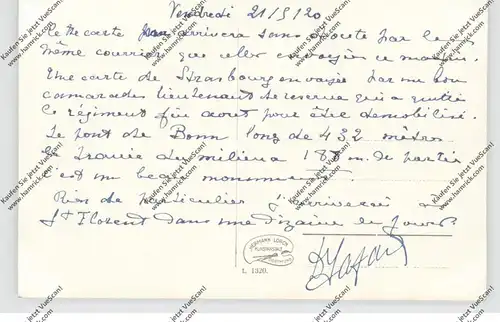 Vendredi 21/5/20
Cette carte arrivera sans doute par le
même courrier que celles envoyées ce matin.
Une carte de Strasbourg envoyée par un bon
camarade lieutenant de réserve qui a quitté
ce régiment fin aout pour être démobilisé.
Le pont de Bonn long de 432 mètres
travée du milieu a 188 m. de portée
c'est un beau monument.
Rien de particulier j'arriverai à
St Florent dans une dizaine de jours
HERMANN LORCH
KUNSTANSTALT
L 1320.
Kaufen Sie jetzt VueScan!